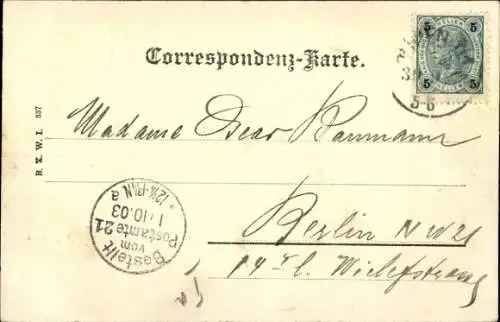 Correspondenz-Karte.
5 5
5 5
5-6
B. K. W. I. 337
Madame Oscar Baumann
Berlin NW 21
Bestellt
vom
Postamte 21
1.10.03
12¼-1¼N. a